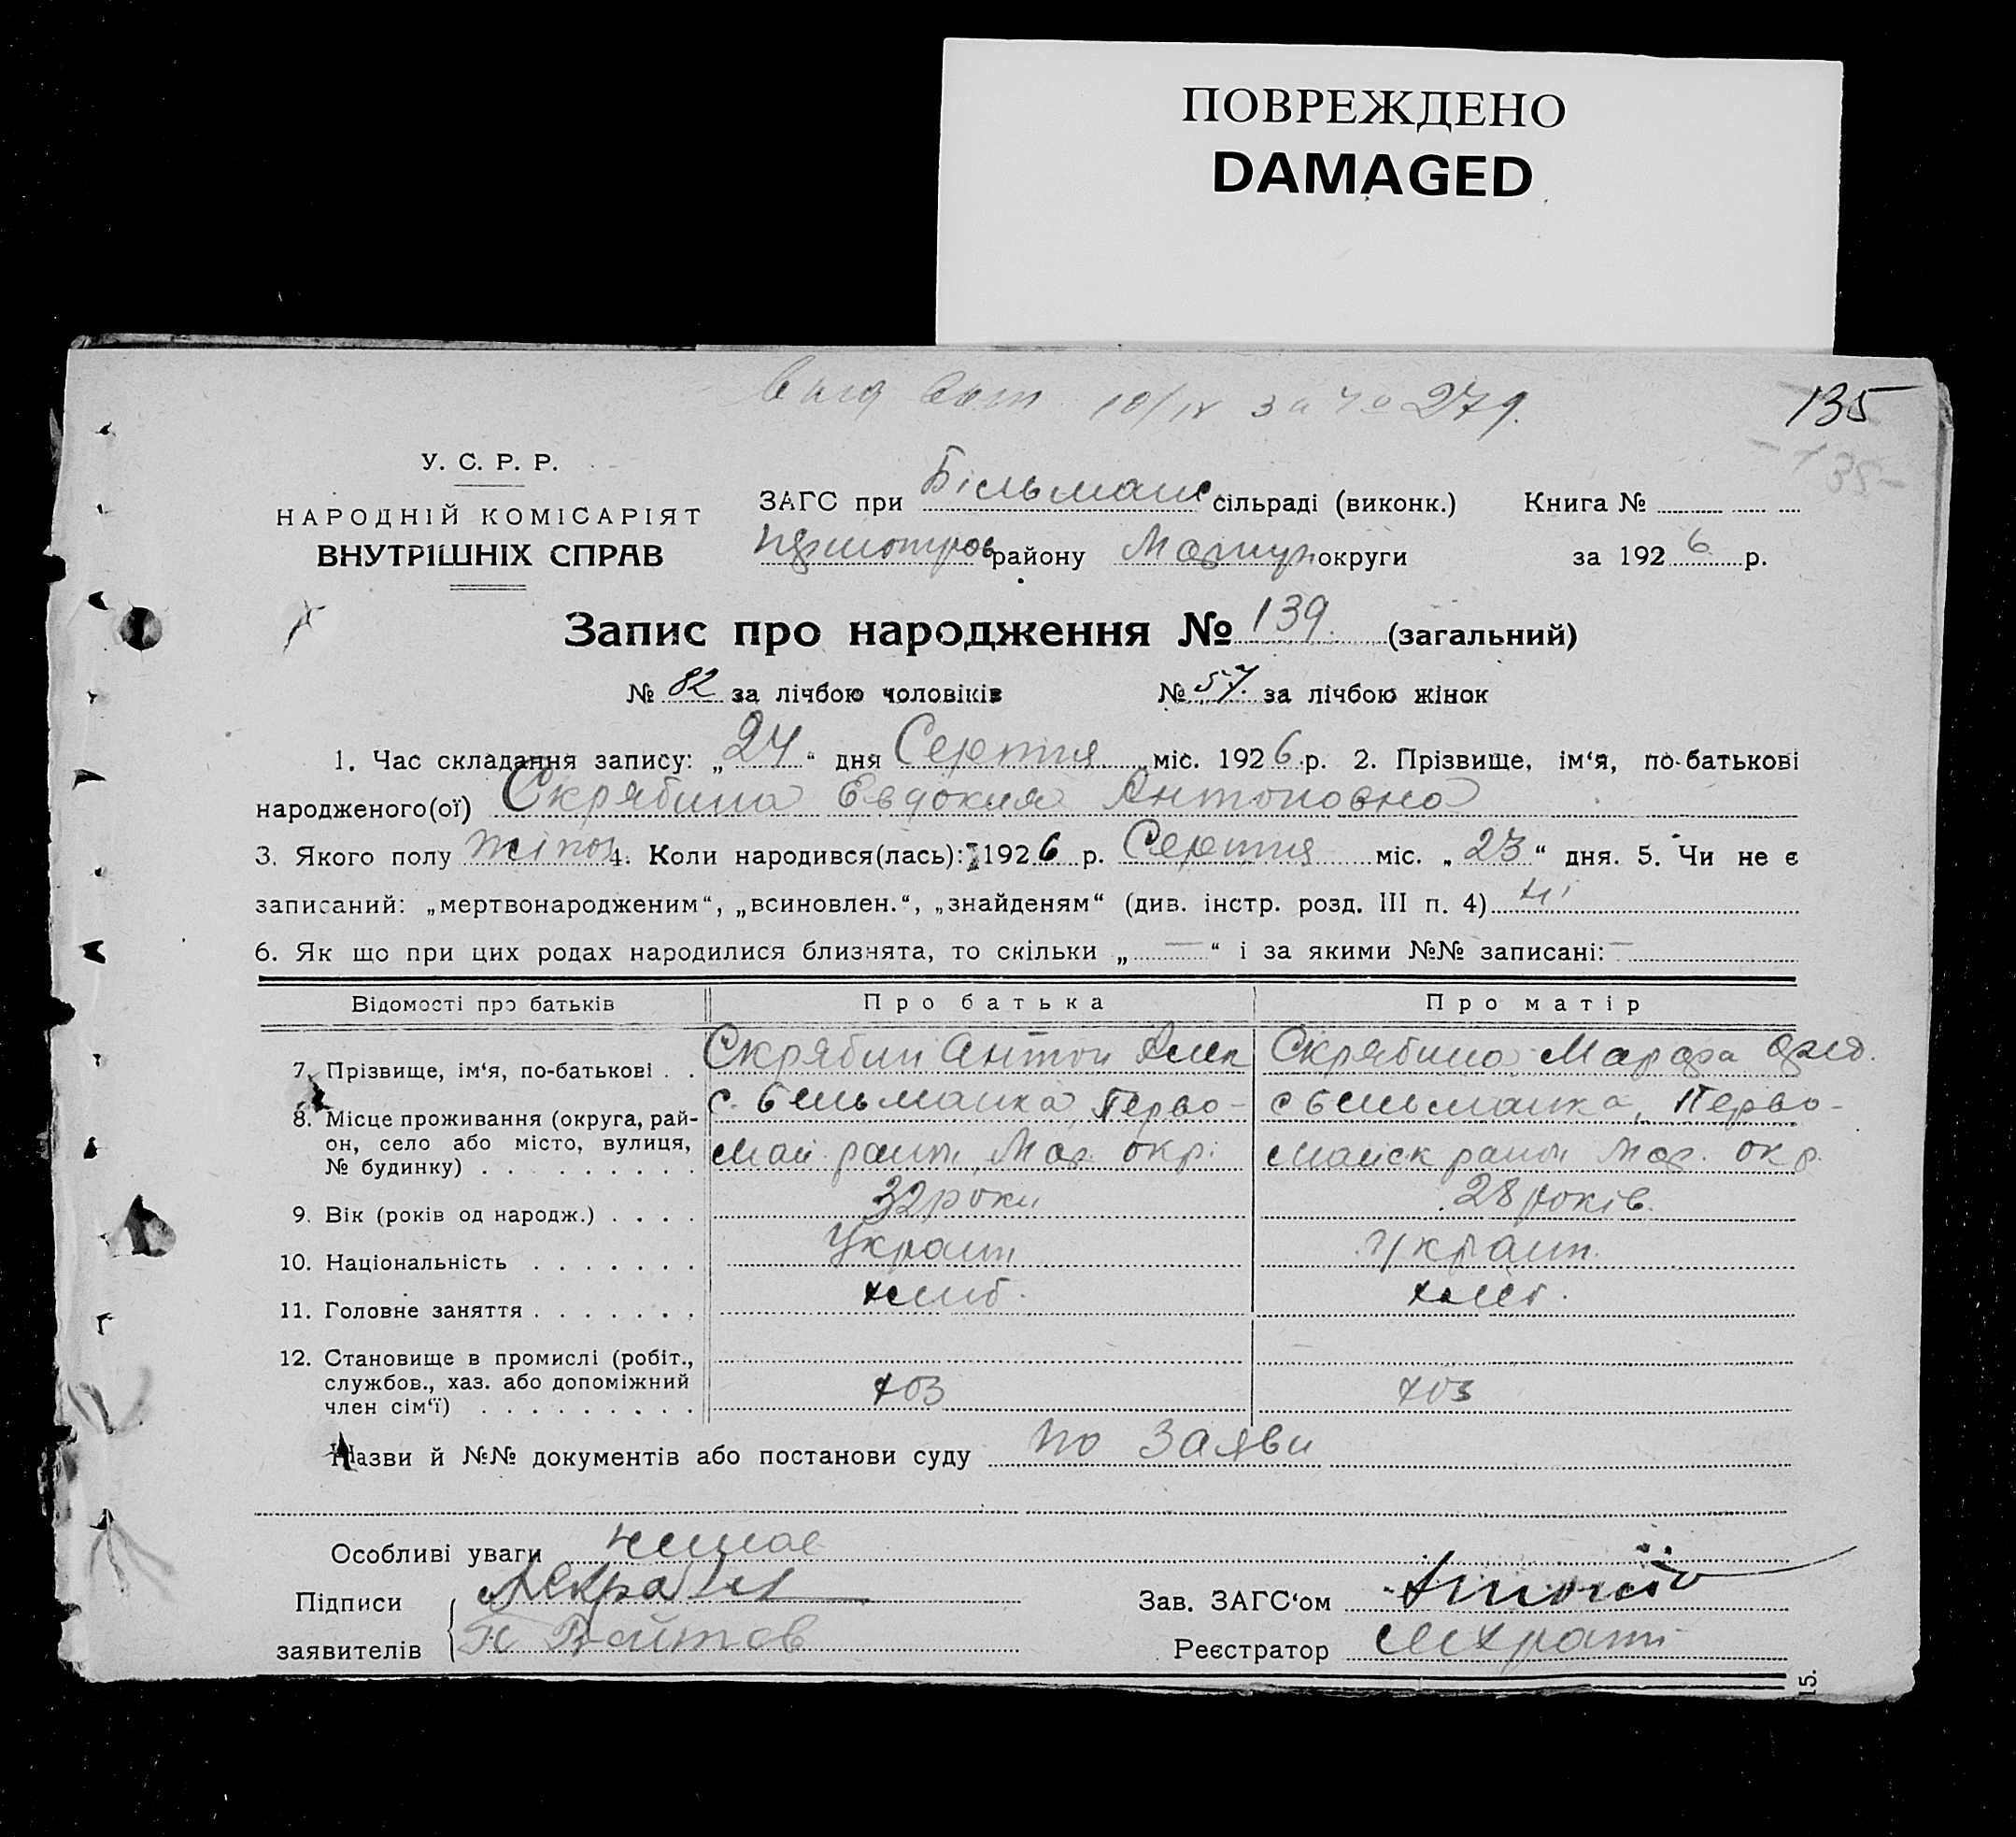 ПОВРЕЖДЕНО
DAMAGED
10/IV за № 279.
135
135
У. С. Р. Р.
НАРОДНІЙ КОМІСАРІЯТ
ВНУТРІШНІХ СПРАВ
ЗАГС при Більманс сільраді (виконк.) Книга №
району Маріуп округи за 1926 р.
Запис про народження № 139. (загальний)
№ 82 за лічбою чоловіків № 57. за лічбою жінок
1. Час складання запису: „24“ дня Серпня міс. 1926 р. 2. Прізвище, ім‘я, по-батькові
народженого(ої) Скрябина Евдокия Антоновна
3. Якого полу жіноч 4. Коли народився(лась): 1926 р. Серпня міс. „23“ дня. 5. Чи не є
записаний: „мертвонародженим“, „всиновлен.“, „знайденям“ (див. інстр. розд. III п. 4) ні
6. Як що при цих родах народилися близнята, то скільки „—“ і за якими №№ записані: —
Відомості про батьків Про батька Про матір
7. Прізвище, ім‘я, по-батькові . . Скрябин Антон Алек Скрябина Марфа
8. Місце проживання (округа, рай- с. Бельманка Перво- с Бельманка, Перво-
он, село або місто, вулиця, май райн, Мар. окр. майск райн Мар. окр.
№ будинку) . . . . . . . . .
9. Вік (років од народж.) . . . . 32 роки 28 років.
10. Національність . . . . . . . Україн Україн.
11. Головне заняття . . . . . . . хліб. хліб.
12. Становище в промислі (робіт.,
службов., хаз. або допоміжний хоз хоз
член сім‘ї) . . . . . . . . .
Назви й №№ документів або постанови суду по заяви
Особливі уваги немає
Підписи Зав. ЗАГС‘ом
заявителів Реєстратор
15.